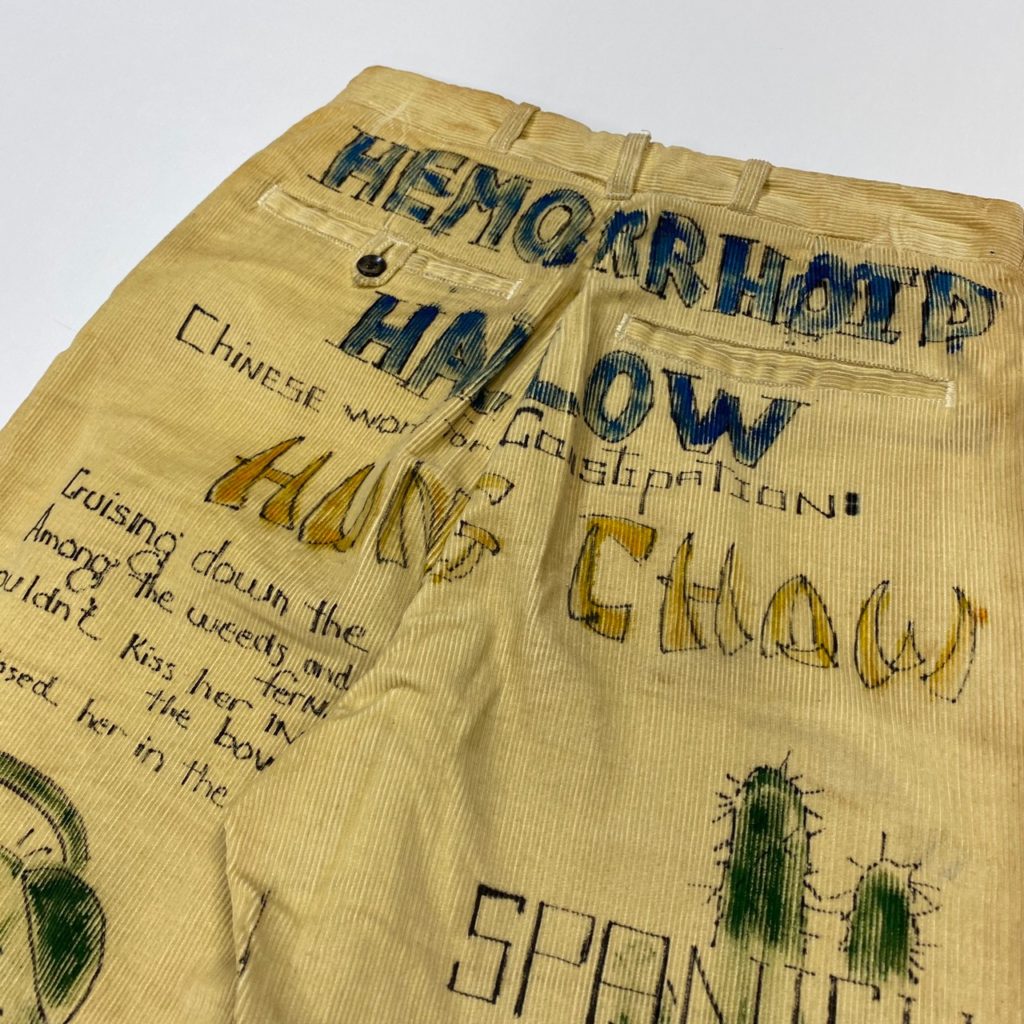 HEMORRHOID
HALLOW
CHINESE WORD for Constipation!
HUNG CHOW
Cruising down the
Among the weeds and
fern
Kiss her IN
the
her in the
SPANISH